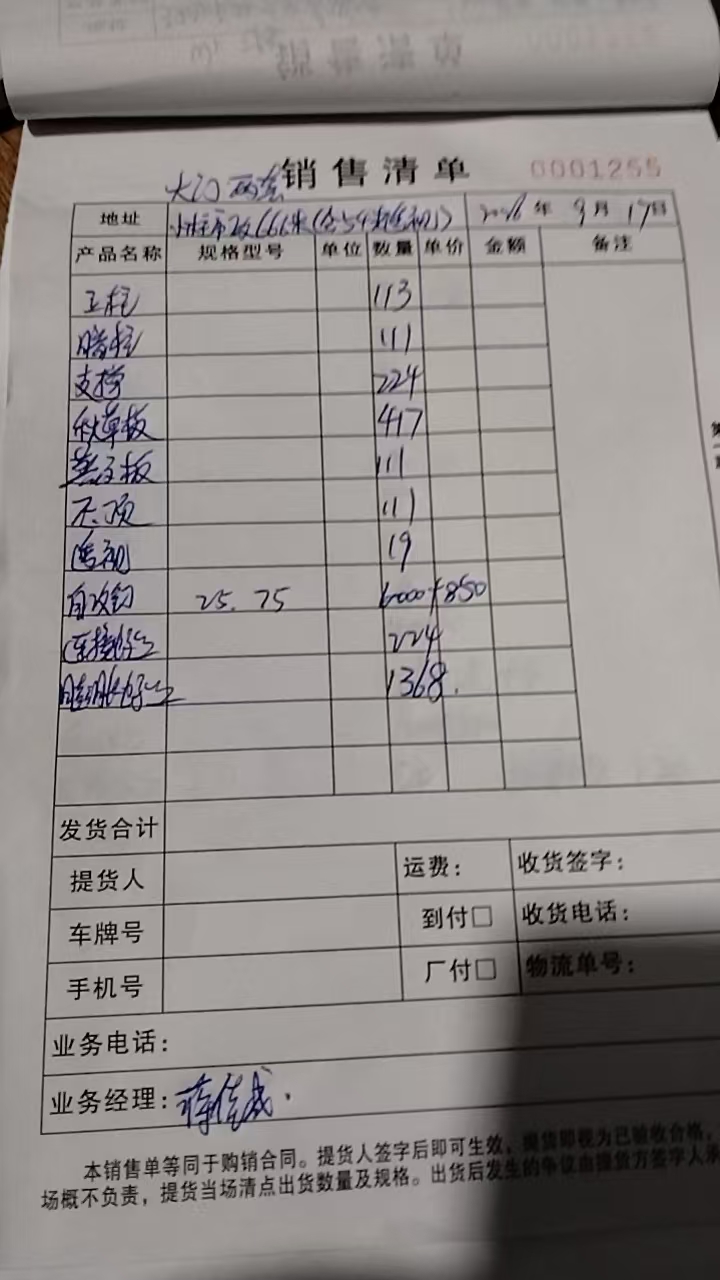 销售清单 0001255
大门两套
地址 小桂市政666米(含54米透视) 2026年9月17日
产品名称 规格型号 单位 数量 单价 金额 备注
立柱 113
暗柱 111
支撑 224
秋草板 417
111
压顶 111
透视 19
自攻钉 25.75 6000+850
连接好丝 224
膨胀好丝 1368.
发货合计
提货人 运费： 收货签字：
车牌号 到付□ 收货电话：
手机号 厂付□ 物流单号：
业务电话：
业务经理：蒋
本销售单等同于购销合同。提货人签字后即可生效，提货即视为已验收合格，
场概不负责，提货当场清点出货数量及规格。出货后发生的争议由提货方签字人承